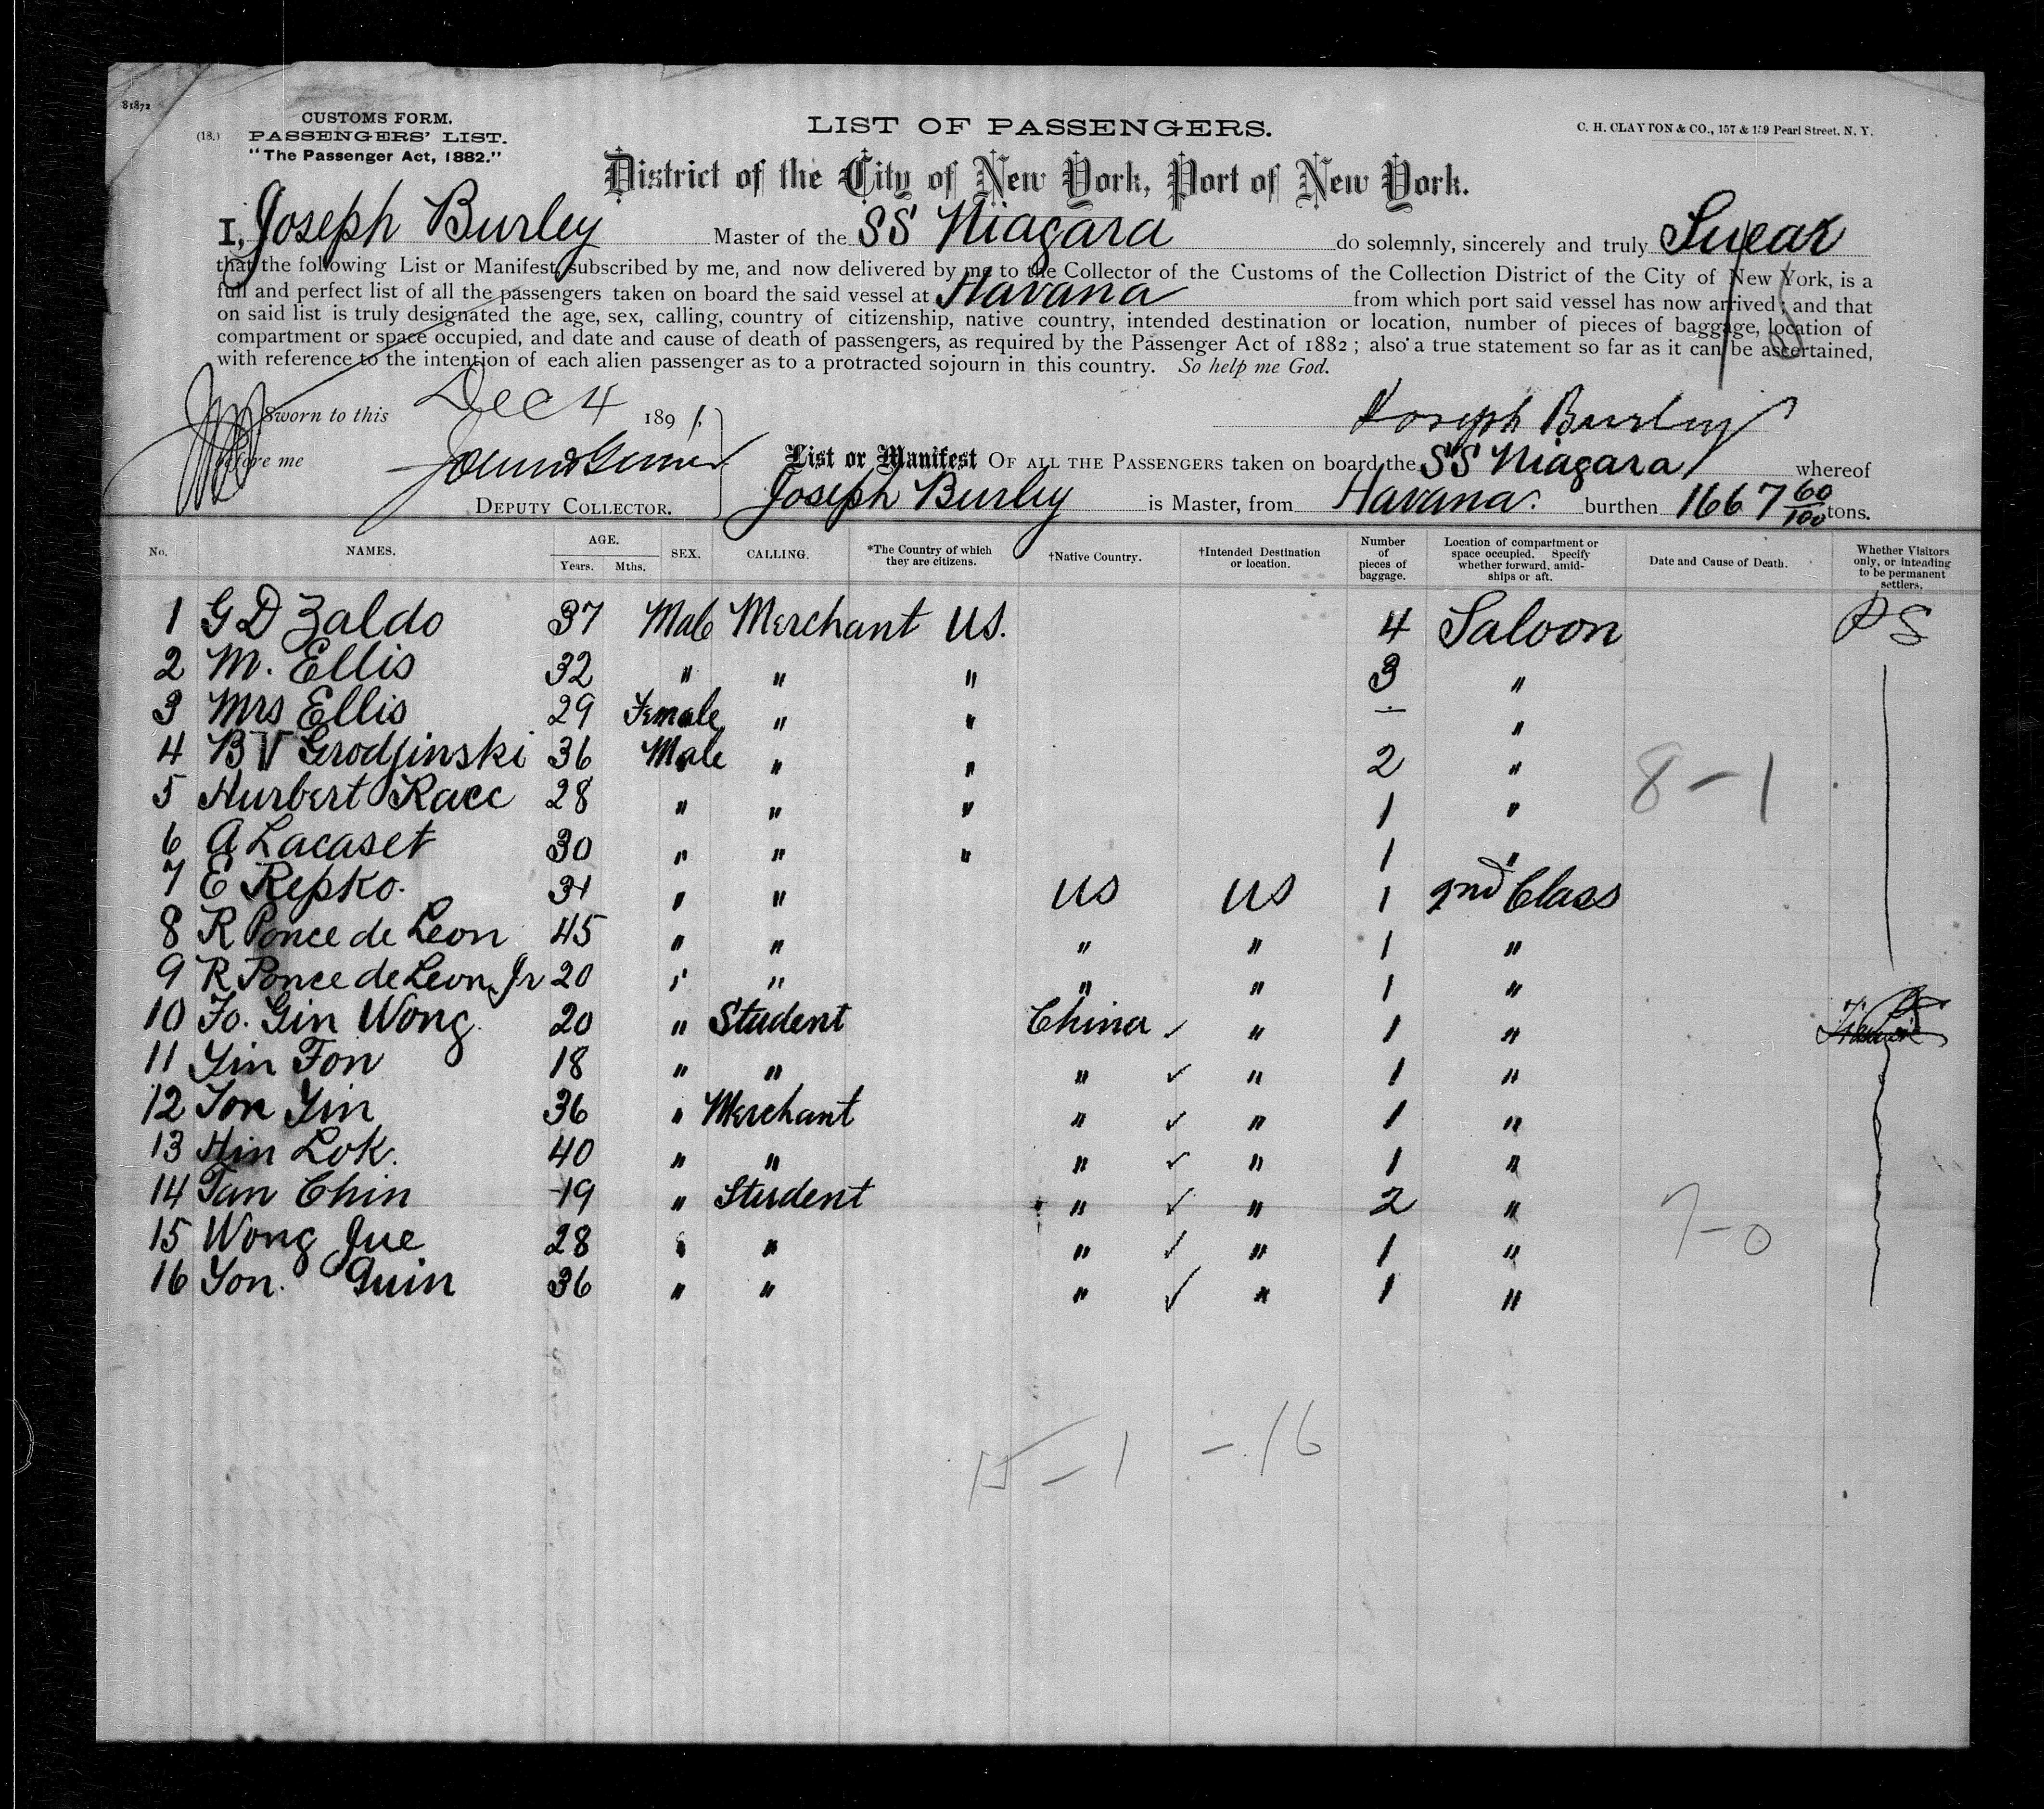 81872
CUSTOMS FORM.
(18.) PASSENGERS' LIST.
"The Passenger Act, 1882."
LIST OF PASSENGERS.
C. H. CLAYTON & CO., 157 & 159 Pearl Street, N. Y.
District of the City of New York, Port of New York.
I, Joseph Burley Master of the SS Niagara do solemnly, sincerely and truly Swear
that the following List or Manifest, subscribed by me, and now delivered by me to the Collector of the Customs of the Collection District of the City of New York, is a
full and perfect list of all the passengers taken on board the said vessel at Havana from which port said vessel has now arrived; and that
on said list is truly designated the age, sex, calling, country of citizenship, native country, intended destination or location, number of pieces of baggage, location of
compartment or space occupied, and date and cause of death of passengers, as required by the Passenger Act of 1882; also a true statement so far as it can be ascertained,
with reference to the intention of each alien passenger as to a protracted sojourn in this country. So help me God.
Sworn to this Dec 4 1891,
Joseph Burley
before me
List or Manifest OF ALL THE PASSENGERS taken on board the SS Niagara whereof
DEPUTY COLLECTOR.
Joseph Burley is Master, from Havana. burthen 1667 60/100 tons.
No. NAMES. AGE. Years. Mths. SEX. CALLING. *The Country of which they are citizens. †Native Country. †Intended Destination or location. Number of pieces of baggage. Location of compartment or space occupied. Specify whether forward, amidships or aft. Date and Cause of Death. Whether Visitors only, or intending to be permanent settlers.
1 G D Zaldo 37 Male Merchant US. 4 Saloon PS
2 M. Ellis 32 " " " 3 "
3 Mrs Ellis 29 Female " " - "
4 B V Grodjinski 36 Male " " 2 "
8-1
5 Hurbert Race 28 " " " 1 "
6 A Lacaset 30 " " " 1 "
7 E Repko. 31 " " US US 1 2nd Class
8 R Ponce de Leon 45 " " " " 1 "
9 R Ponce de Leon Jr 20 " " " " 1 "
10 Fo. Gin Wong. 20 " Student China ✓ " 1 "
11 Yin Fon 18 " " " ✓ " 1 "
12 Ton Yin 36 " Merchant " ✓ " 1 "
13 Hin Lok. 40 " " " ✓ " 1 "
14 Tan Chin 19 " Student " ✓ " 2 "
7-0
15 Wong Jue 28 " " " ✓ " 1 "
16 Yon. Guin 36 " " " ✓ " 1 "
15-1 -16